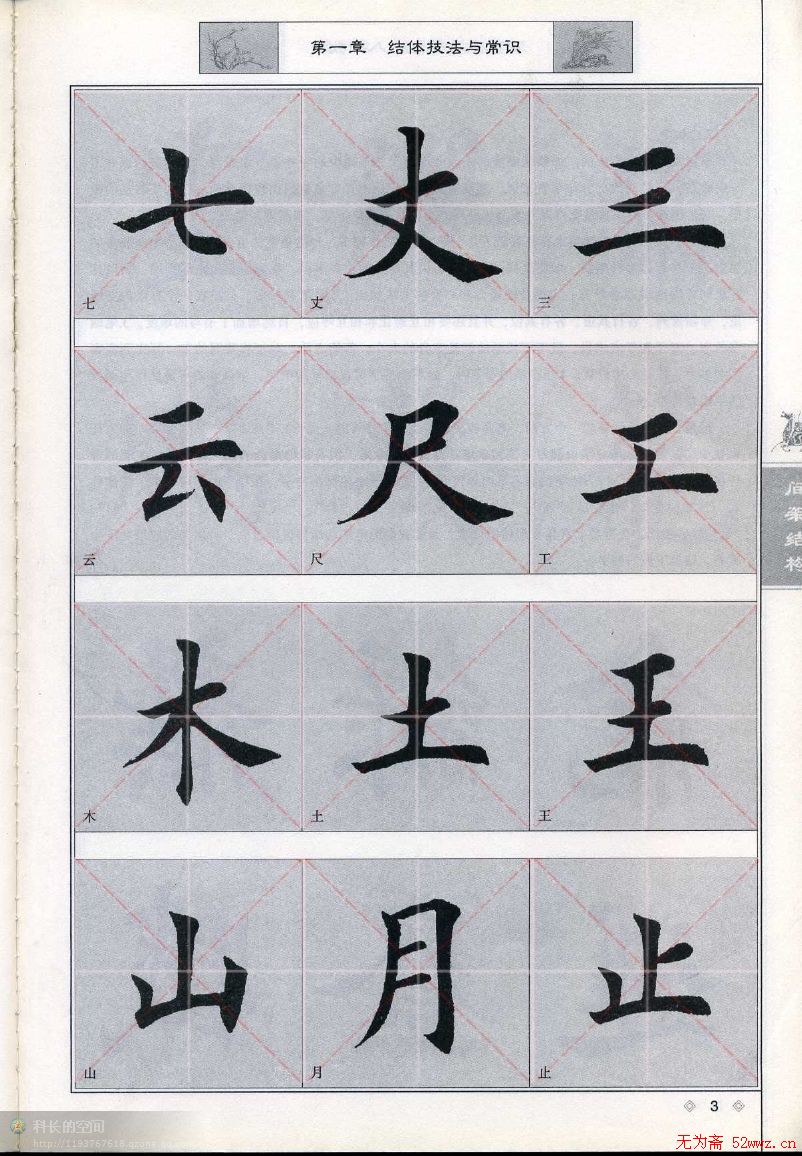 第一章 结体技法与常识
七 丈 三
七 丈 三
云 尺 工
云 尺 工
木 土 王
木 土 王
山 月 止
山 月 止
结构
3
科长的空间
http://1193767618.qzone.qq.com
无为斋 52wwz.cn